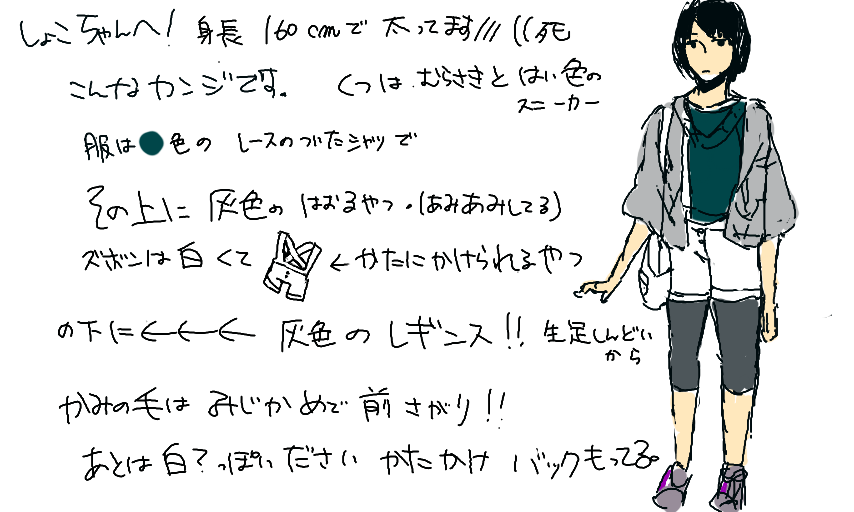 しょこちゃんへ! 身長 160cmで 太ってます///((死
こんなカンジです。 くつは むらさきと はい色の
スニーカー
服は●色の レースのついたシャツで
その上に 灰色の はおるやつ・(あみあみしてる)
ズボンは白くて ←かたにかけられるやつ
の下に←←← 灰色のレギンス!! 生足しんどい
から
かみの毛は みじかめで 前さがり!!
あとは白?っぽい ださい かたかけ バックもってる。